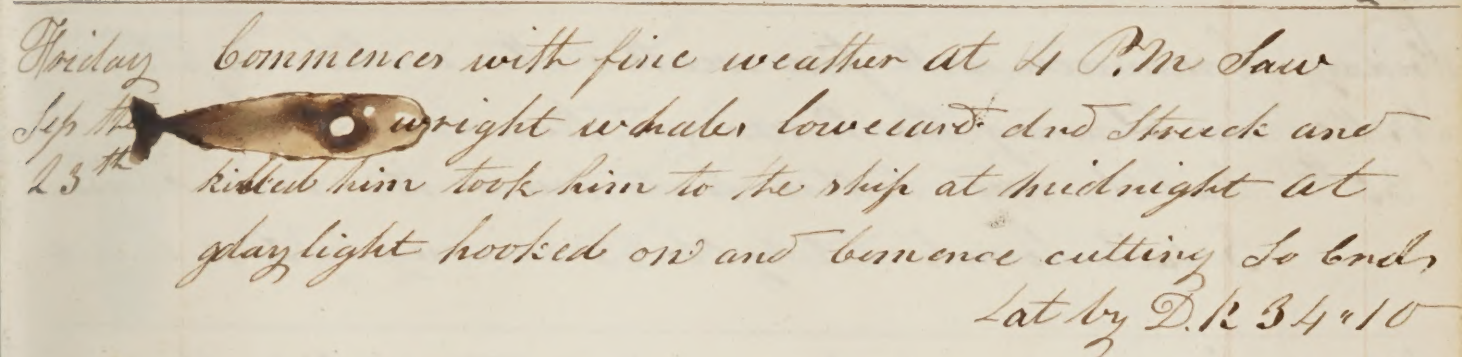 Friday Commences with fine weather at 4 P.M Saw
Sep the wright whales lowecard and Struck and
23th killed him took him to the ship at midnight at
gdaylight hooked on and Comence cutting So Ends
Lat by D.R 34"10